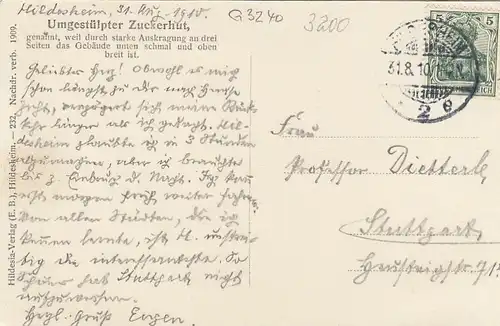 Hildesheim, 31. Aug. 1910.
Q3240
3200
Umgestülpter Zuckerhut,
genannt, weil durch starke Auskragung an drei
Seiten das Gebäude unten schmal und oben
breit ist.
Geliebter Obwohl es mich
schon längst zu dir nach Hause
zieht, verzögert sich meine Rück-
kehr länger als ich gedacht. Hil-
desheim glaubte ich in 3 Stunden
abzumachen, aber ich brauchte
bis z. Einbruch d. Nacht.
erst morgen früh weiter fahren.
Von allen Städten, die ich
kennen lernte, ist H. unstrei-
tig die interessanteste. So
hat Stuttgart nicht
aufzuweisen.
Herzl. Gruß Eugen.
Hildesia-Verlag (E. B.), Hildesheim. — 232. Nachdr. verb. 1909.
5 5
HILDESHEIM
31.8.10
* 2 e
REICH
Frau
Professor Dieterle
Stuttgart